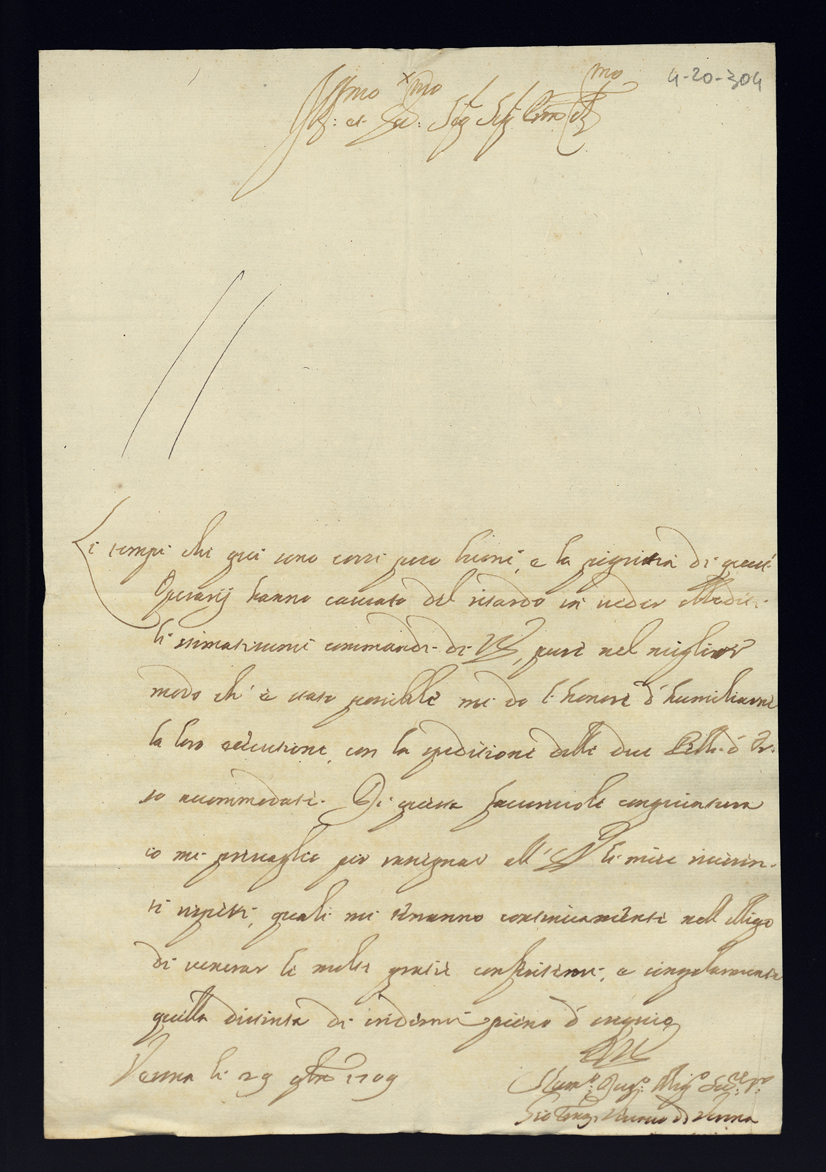 4-20-304
Ill.mo et Ecc.mo Sig.r Sig.r P.ron Col.mo
Li tempi che qui sono corsi poco buoni, e la pigritia di questi
Operarij hanno causato del ritardo in veder obbediti
li stimatissimi commandi di VE, pure nel miglior
modo ch'è stato possibile mi do l'honore d'humiliarne
la loro esecutione, con la speditione delle due Pelli d'Or-
so accommodate. Di questa favorevole congiuntura
io mi prevaglio per rassegnar all'EV li miei riveren-
ti rispetti, quali mi tenanno continuamente nell'obligo
di venerar le molte gratie conferitemi, e singolarmente
quella distinta di vedermi pieno d'ossequio
Di VE
li 29 9bre 1709
Hum.o Dev.o Oblig.o Ser.re